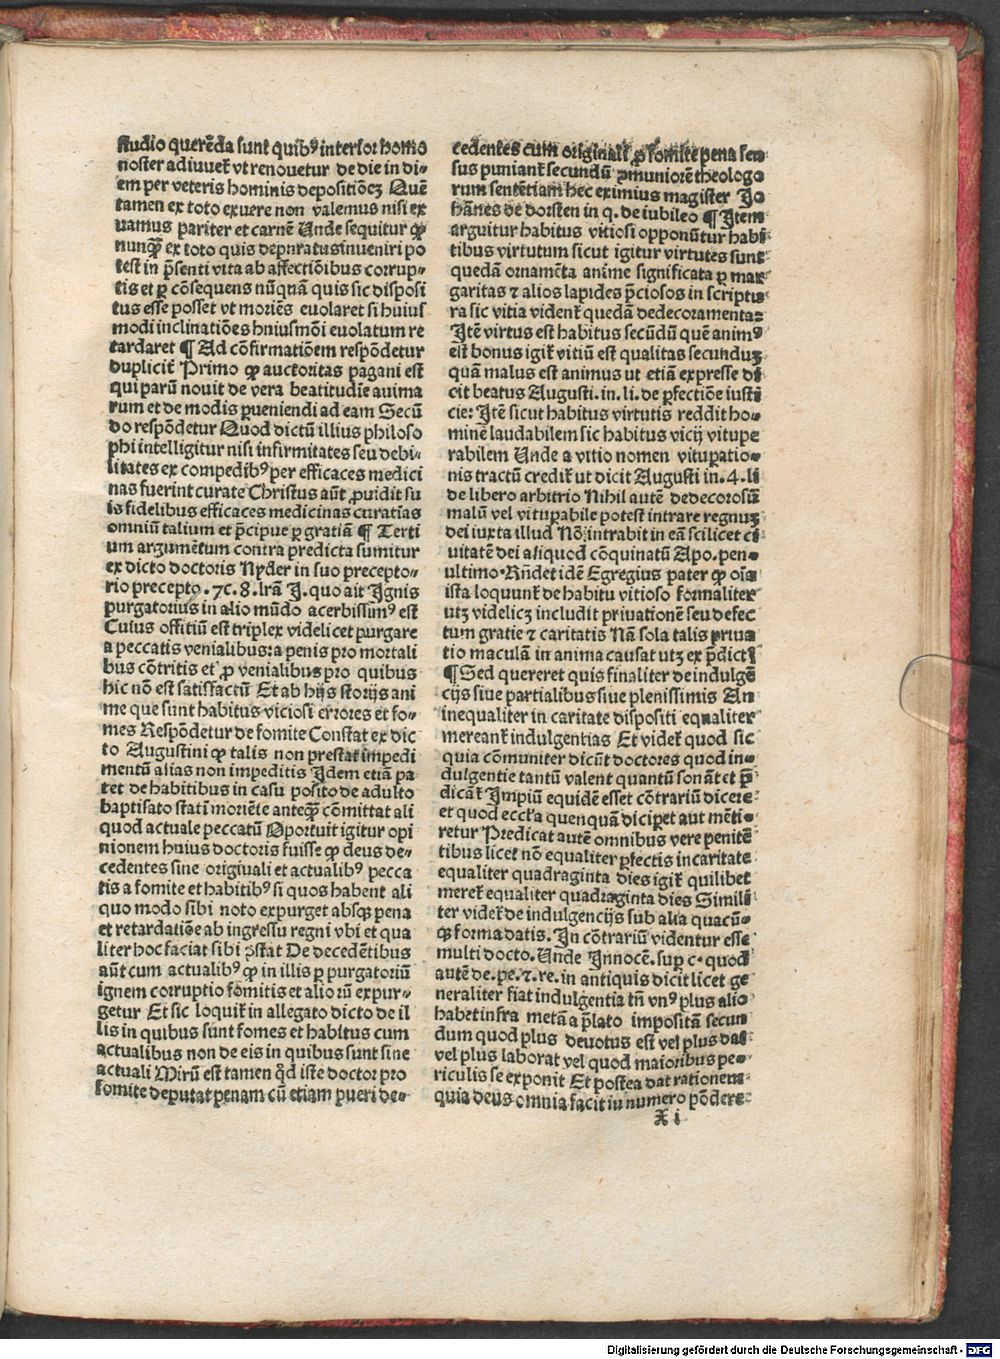 studio querẽda sunt quibꝰ interior homo
noster adiuuet᷑ vt renouetur de die in di⸗
em per veteris hominis depositiõeꝫ Quẽ
tamen ex toto exuere non valemus nisi ex
uamus pariter et carnẽ Unde sequitur ꝙ
nunqꝫ̃ ex toto quis depuratus inueniri po
test in p̃senti vita ab affectiõibus corrup⸗
tis et ꝑ cõsequens nũquã quis sic disposi
tus esse posset vt moriẽs euolaret si huius
modi inclinatiões hniusmõi euolatum re
tardaret ¶ Ad cõfirmatiõem respõdetur
duplicit᷑ Primo ꝙ auctoritas pagani est
qui parũ nouit de vera beatitudĩe auima
rum et de modis ꝑueniendi ad eam Secũ
do respõdetur Quod dictũ illius philoso
phi intelligitur nisi infirmitates seu debi⸗
litates ex compedibꝰ per efficaces medici
nas fuerint curate Christus aũt ꝓuidit su
is fidelibus efficaces medicinas curatias
omniũ talium et p̃cipue ꝑ gratiã ¶ Terti
um argumẽtum contra predicta sumitur
ex dicto doctoris Nyder in suo precepto⸗
rio preceptꝰ. 7c. 8. lrã J. quo ait Ignis
purgatorius in alio mũdo acerbissimꝰ est
Cuius offitiũ est triplex videlicet purgare
a peccatis venialibus: a penis pro mortali
bus cõtritis et ꝓ venialibus pro quibus
hic nõ est satisfactũ Et ab hijs storijs ani
me que sunt habitus viciosi errores et fo⸗
mes Respõdetur de fomite Constat ex dic
to Augustini ꝙ talis non prestat impedi
mentũ alias non impeditis Idem etiã pa
tet de habitibus in casu posito de adulto
baptisato statĩ moriẽte anteqꝫ̃ cõmittat ali
quod actuale peccatũ Oportuit igitur opi
nionem huius doctoris fuisse ꝙ deus de⸗
cedentes sine origiuali et actualibꝰ pecca
tis a fomite et habitibꝰ si quos habent ali
quo modo sibi noto expurget absqꝫ pena
et retardatiõe ab ingressu regni vbi et qua
liter hoc faciat sibi ꝯstat De decedẽtibus
aũt cum actualibꝰ ꝙ in illis ꝑ purgatoriũ
ignem corruptio fomitis et aliorũ expur⸗
getur Et sic loquit᷑ in allegato dicto de il
lis in quibus sunt fomes et habitus cum
actualibus non de eis in quibus sunt sine
actuali Mirũ est tamen q̃d iste doctor pro
fomite deputat penam cũ etiam pueri de⸗
cedentes cum originali ꝓ fomite pena sen
sus puniant᷑ secundũ ꝯmuniorẽ theologo
rum sentẽtiam hec eximius magister Jo
hãnes de dorsten in q. de iubileo ¶ Item
arguitur habitus vitiosi opponũtur habi
tibus virtutum sicut igitur virtutes sunt
quedã ornamẽta anime significata ꝑ mar
garitas ⁊ alios lapides p̃ciosos in scriptu
ra sic vitia vident᷑ quedã dedecoramenta:
Itẽ virtus est habitus secũdũ quẽ animꝰ
est bonus igit᷑ vitiũ est qualitas secunduꝫ
quã malus est animus ut etiã expresse di
cit beatus Augusti. in. li. de ꝑfectiõe iusti
cie: Itẽ sicut habitus virtutis reddit ho⸗
minẽ laudabilem sic habitus vicij vitupe
rabilem Unde a vitio nomen vituꝑatio⸗
nis tractũ credit᷑ ut dicit Augusti in. 4. li
de libero arbitrio Nihil autẽ dedecorosũ
malũ vel vituꝑabile potest intrare regnuꝫ
dei iuxta illud Nõ intrabit in eã scilicet ci
uitatẽ dei aliquod cõquinatũ Apo. pen⸗
ultimo. Rñdet idẽ Egregius pater ꝙ oĩa
ista loquunt᷑ de habitu vitioso formaliter
utꝫ videlicꝫ includit priuationẽ seu defec
tum gratie ⁊ caritatis Nã sola talis priua
tio maculã in anima causat utꝫ ex p̃dictꝭ
¶ Sed quereret quis finaliter de indulgẽ
cijs siue partialibus siue plenissimis An
inequaliter in caritate dispositi equaliter
mereant᷑ indulgentias Et videt᷑ quod sic
quia cõmuniter dicũt doctores quod in⸗
dulgentie tantũ valent quantũ sonãt et p̃
dicãt᷑ Impiũ equidẽ esset cõtrariũ dicere
et quod eccl̃a quenquã dicipet aut mẽti⸗
retur Predicat autẽ omnibus vere penitẽ
tibus licet nõ equaliter ꝑfectis in caritate
equaliter quadraginta dies igit᷑ quilibet
meret᷑ equaliter quadraginta dies Simili
ter videt᷑ de indulgencijs sub alia quacũ⸗
qꝫ forma datis. In cõtrariũ videntur esse
multi docto. Unde Innocẽ. suꝑ c. quod
autẽ de. pe. ⁊. re. in antiquis dicit licet ge
neraliter fiat indulgentia tñ vnꝰ plus alio
habet infra metã a p̃lato impositã secun
dum quod plus deuotus est vel plus dat
vel plus laborat vel quod maioribus pe⸗
riculis se exponit Et postea dat rationem
quia deus omnia facit iu numero põdere
X i
Digitalisierung gefördert durch die Deutsche Forschungsgemeinschaft - DFG